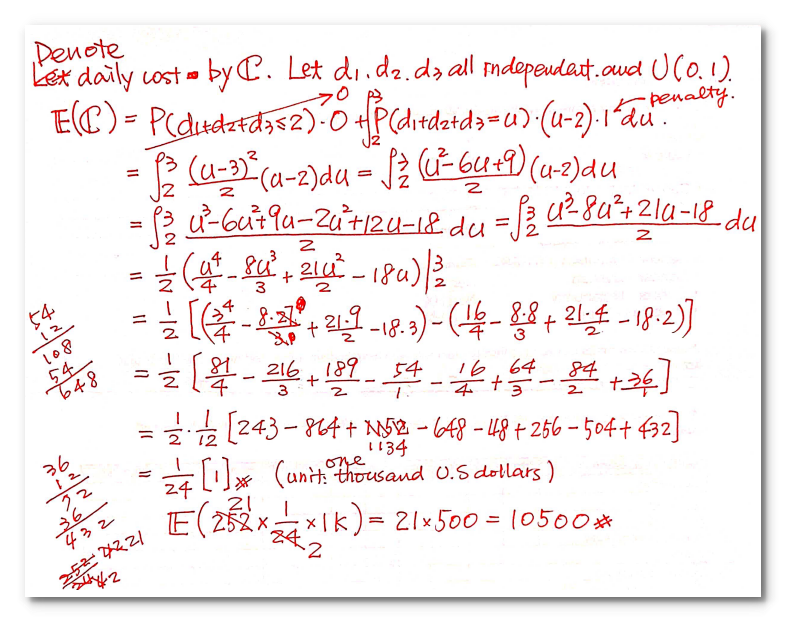 Denote
Let daily cost by ℂ. Let d1, d2, d3 all independent. and U(0,1).
𝔼(ℂ) = P(d1+d2+d3≤2)·0 + ∫_2^3 P(d1+d2+d3=u)·(u-2)·1 du.
0
penalty.
= ∫_2^3 (u-3)²/2 (u-2)du = ∫_2^3 (u²-6u+9)/2 (u-2)du
= ∫_2^3 (u³-6u²+9u-2u²+12u-18)/2 du = ∫_2^3 (u³-8u²+21u-18)/2 du
= 1/2 (u⁴/4 - 8u³/3 + 21u²/2 - 18u)|_2^3
= 1/2 [(3⁴/4 - 8·27/3 + 21·9/2 - 18·3) - (16/4 - 8·8/3 + 21·4/2 - 18·2)]
= 1/2 [81/4 - 216/3 + 189/2 - 54/1 - 16/4 + 64/3 - 84/2 + 36/1]
= 1/2 · 1/12 [243 - 864 + 1152 - 648 - 48 + 256 - 504 + 432]
1134
= 1/24 [1] (unit: one thousand U.S dollars)
𝔼(252 × 1/24 × 1k) = 21 × 500 = 10500
21
2
54
12
108
54
648
36
12
72
36
432